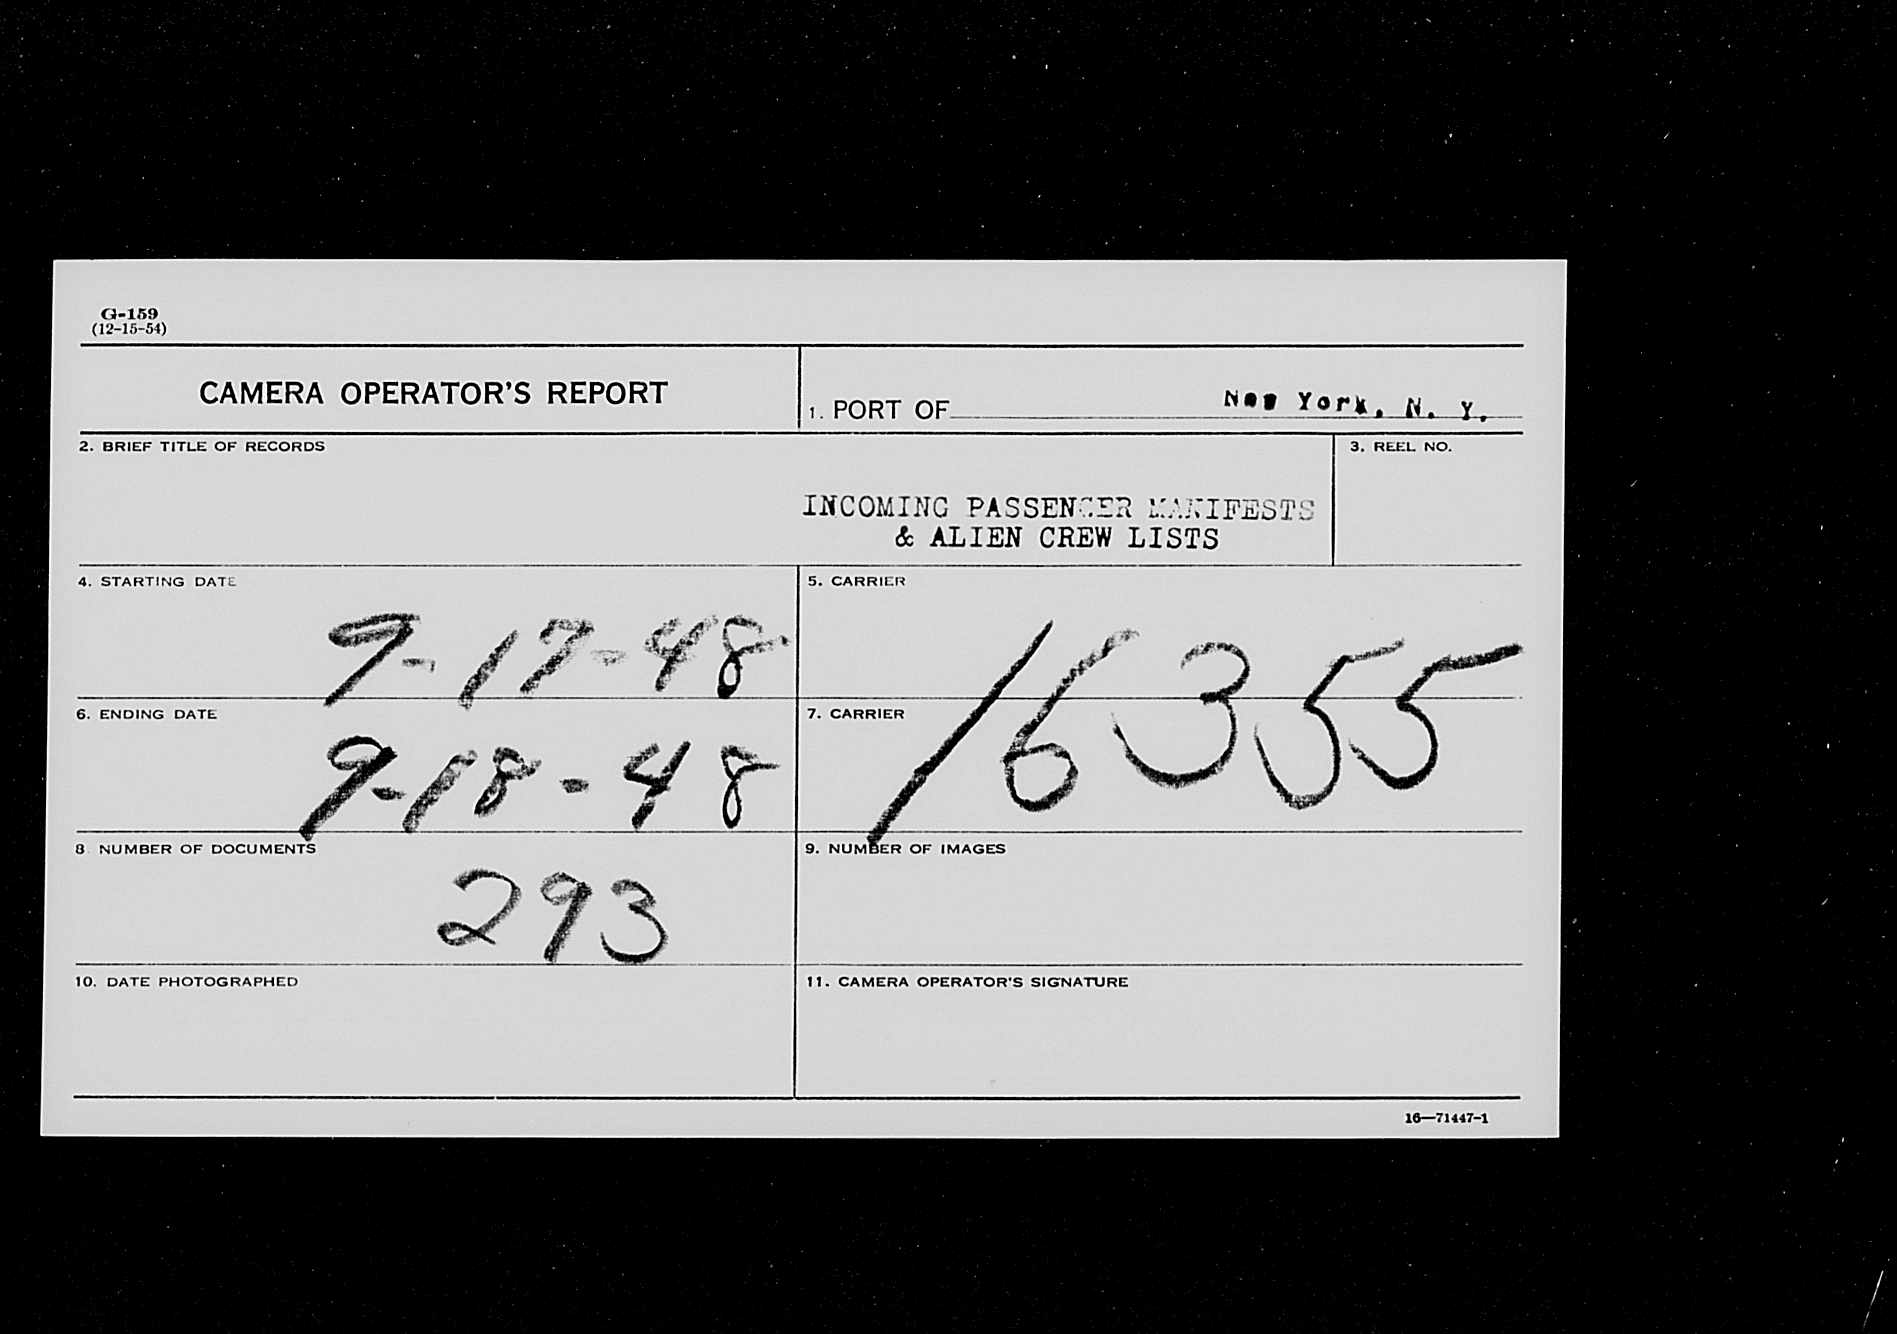 G-159
(12-15-54)
CAMERA OPERATOR'S REPORT
1. PORT OF New York, N. Y.
2. BRIEF TITLE OF RECORDS
3. REEL NO.
INCOMING PASSENGER MANIFESTS
& ALIEN CREW LISTS
4. STARTING DATE
9-17-48
5. CARRIER
16355
6. ENDING DATE
9-18-48
7. CARRIER
8 NUMBER OF DOCUMENTS
293
9. NUMBER OF IMAGES
10. DATE PHOTOGRAPHED
11. CAMERA OPERATOR'S SIGNATURE
16—71447-1